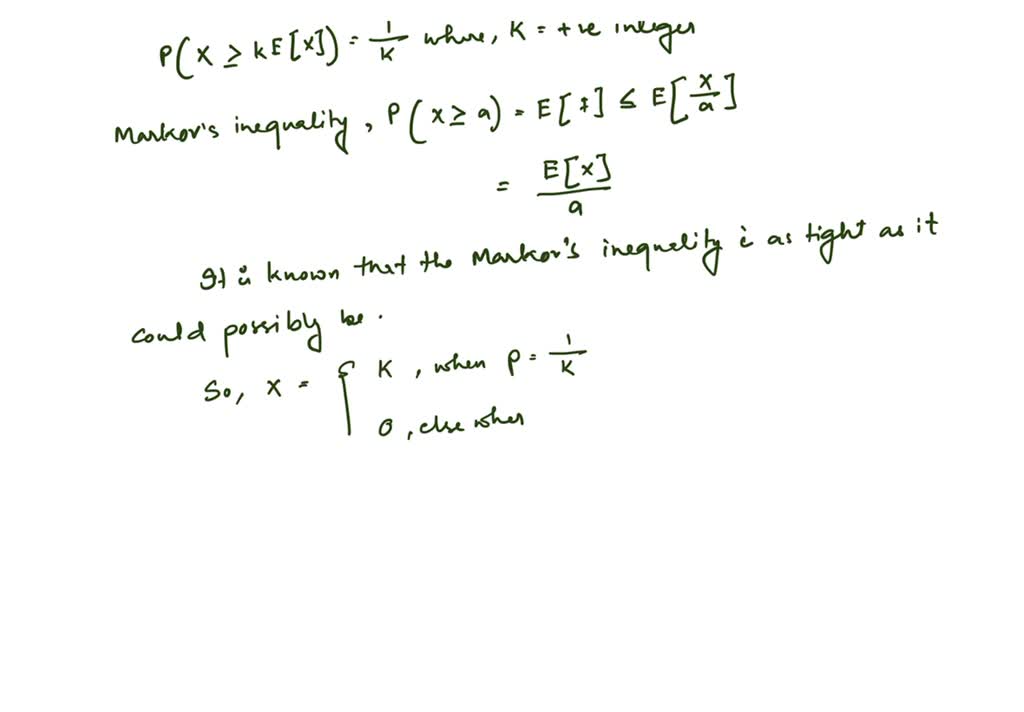 P(X ≥ kE[X]) = 1/K where, K = +ve integer
Markov's inequality, P(X ≥ a) = E[I] ≤ E[X/a]
= E[X]/a
It is known that the Markov's inequality is as tight as it
could possibly be.
So, X = { K, when P = 1/K
0, else when